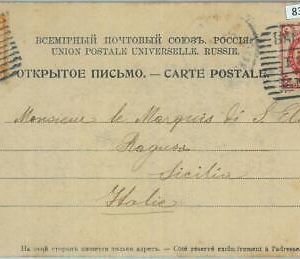 83
ВСЕМІРНЫЙ ПОЧТОВЫЙ СОЮЗЪ. РОССІЯ.
UNION POSTALE UNIVERSELLE. RUSSIE.
ОТКРЫТОЕ ПИСЬМО. — CARTE POSTALE.
Monsieur le Marquis di S.
Ragusa
Sicilia
Italie
На этой сторонѣ пишется только адресъ. — Côté réservé exclusivement à l'adresse.